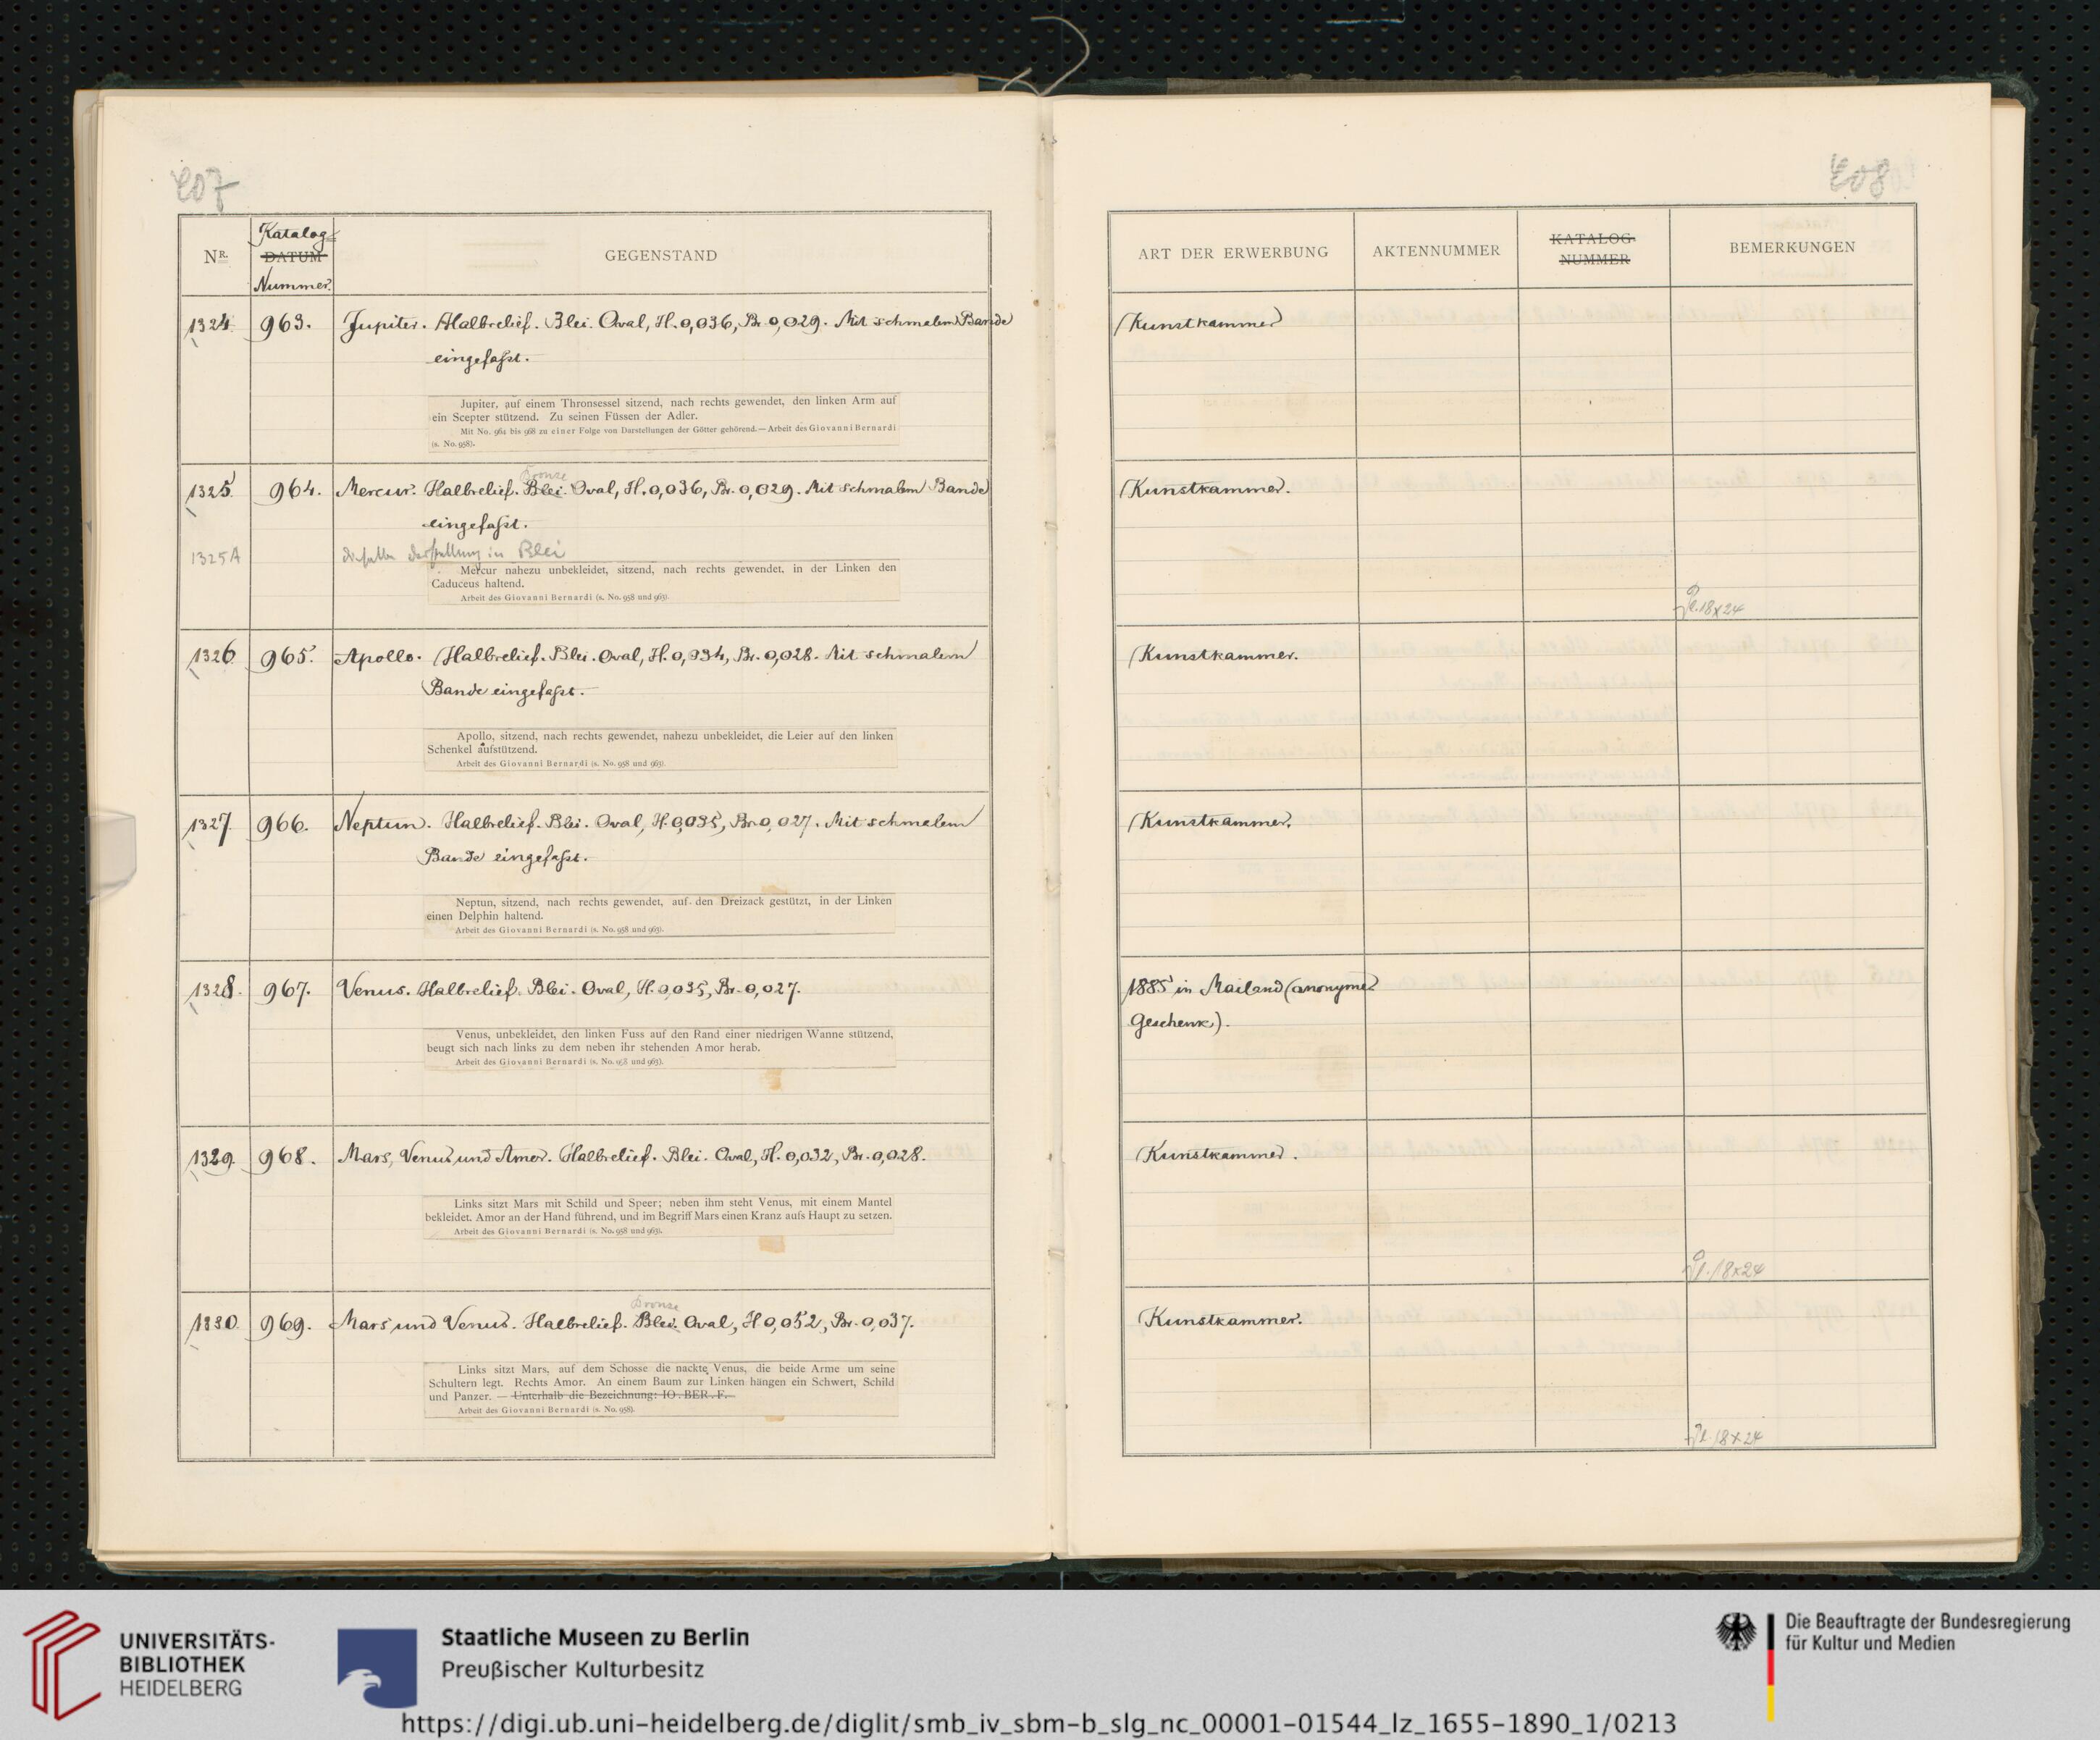 207
NR.
Katalog-
DATUM
Nummer.
GEGENSTAND
1324. 963. Jupiter. Halbrelief. Blei. Oval, H. 0,036, Br. 0,029. Mit schmalem Bande
eingefaßt.
Jupiter, auf einem Thronsessel sitzend, nach rechts gewendet, den linken Arm auf
ein Scepter stützend. Zu seinen Füssen der Adler.
Mit No. 964 bis 968 zu einer Folge von Darstellungen der Götter gehörend. — Arbeit des Giovanni Bernardi
(s. No. 958).
Bronze
1325. 964. Mercur. Halbrelief. Blei. Oval, H. 0,036, Br. 0,029. Mit schmalem Bande
eingefaßt.
1325A dieselbe Darstellung in Blei
Mercur nahezu unbekleidet, sitzend, nach rechts gewendet, in der Linken den
Caduceus haltend.
Arbeit des Giovanni Bernardi (s. No. 958 und 963).
1326. 965. Apollo. Halbrelief. Blei. Oval, H. 0,034, Br. 0,028. Mit schmalem
Bande eingefaßt.
Apollo, sitzend, nach rechts gewendet, nahezu unbekleidet, die Leier auf den linken
Schenkel aufstützend.
Arbeit des Giovanni Bernardi (s. No. 958 und 963).
1327. 966. Neptun. Halbrelief. Blei. Oval, H. 0,035, Br. 0,027. Mit schmalem
Bande eingefaßt.
Neptun, sitzend, nach rechts gewendet, auf den Dreizack gestützt, in der Linken
einen Delphin haltend.
Arbeit des Giovanni Bernardi (s. No. 958 und 963).
1328. 967. Venus. Halbrelief. Blei. Oval, H. 0,035, Br. 0,027.
Venus, unbekleidet, den linken Fuss auf den Rand einer niedrigen Wanne stützend,
beugt sich nach links zu dem neben ihr stehenden Amor herab.
Arbeit des Giovanni Bernardi (s. No. 958 und 963).
1329. 968. Mars, Venus und Amor. Halbrelief. Blei. Oval, H. 0,032, Br. 0,028.
Links sitzt Mars mit Schild und Speer; neben ihm steht Venus, mit einem Mantel
bekleidet, Amor an der Hand führend, und im Begriff Mars einen Kranz aufs Haupt zu setzen.
Arbeit des Giovanni Bernardi (s. No. 958 und 963).
Bronze
1330. 969. Mars und Venus. Halbrelief. Blei. Oval, H. 0,052, Br. 0,037.
Links sitzt Mars, auf dem Schosse die nackte Venus, die beide Arme um seine
Schultern legt. Rechts Amor. An einem Baum zur Linken hängen ein Schwert, Schild
und Panzer. — Unterhalb die Bezeichnung: IO. BER. F.
Arbeit des Giovanni Bernardi (s. No. 958).
208
ART DER ERWERBUNG
AKTENNUMMER
KATALOG-
NUMMER
BEMERKUNGEN
Kunstkammer
Kunstkammer.
Pl. 18x24
Kunstkammer.
Kunstkammer.
1885 in Mailand (anonymes
Geschenk).
Kunstkammer.
Pl. 18x24
Kunstkammer.
Pl. 18x24
UNIVERSITÄTS-
BIBLIOTHEK
HEIDELBERG
Staatliche Museen zu Berlin
Preußischer Kulturbesitz
Die Beauftragte der Bundesregierung
für Kultur und Medien
https://digi.ub.uni-heidelberg.de/diglit/smb_iv_sbm-b_slg_nc_00001-01544_lz_1655-1890_1/0213